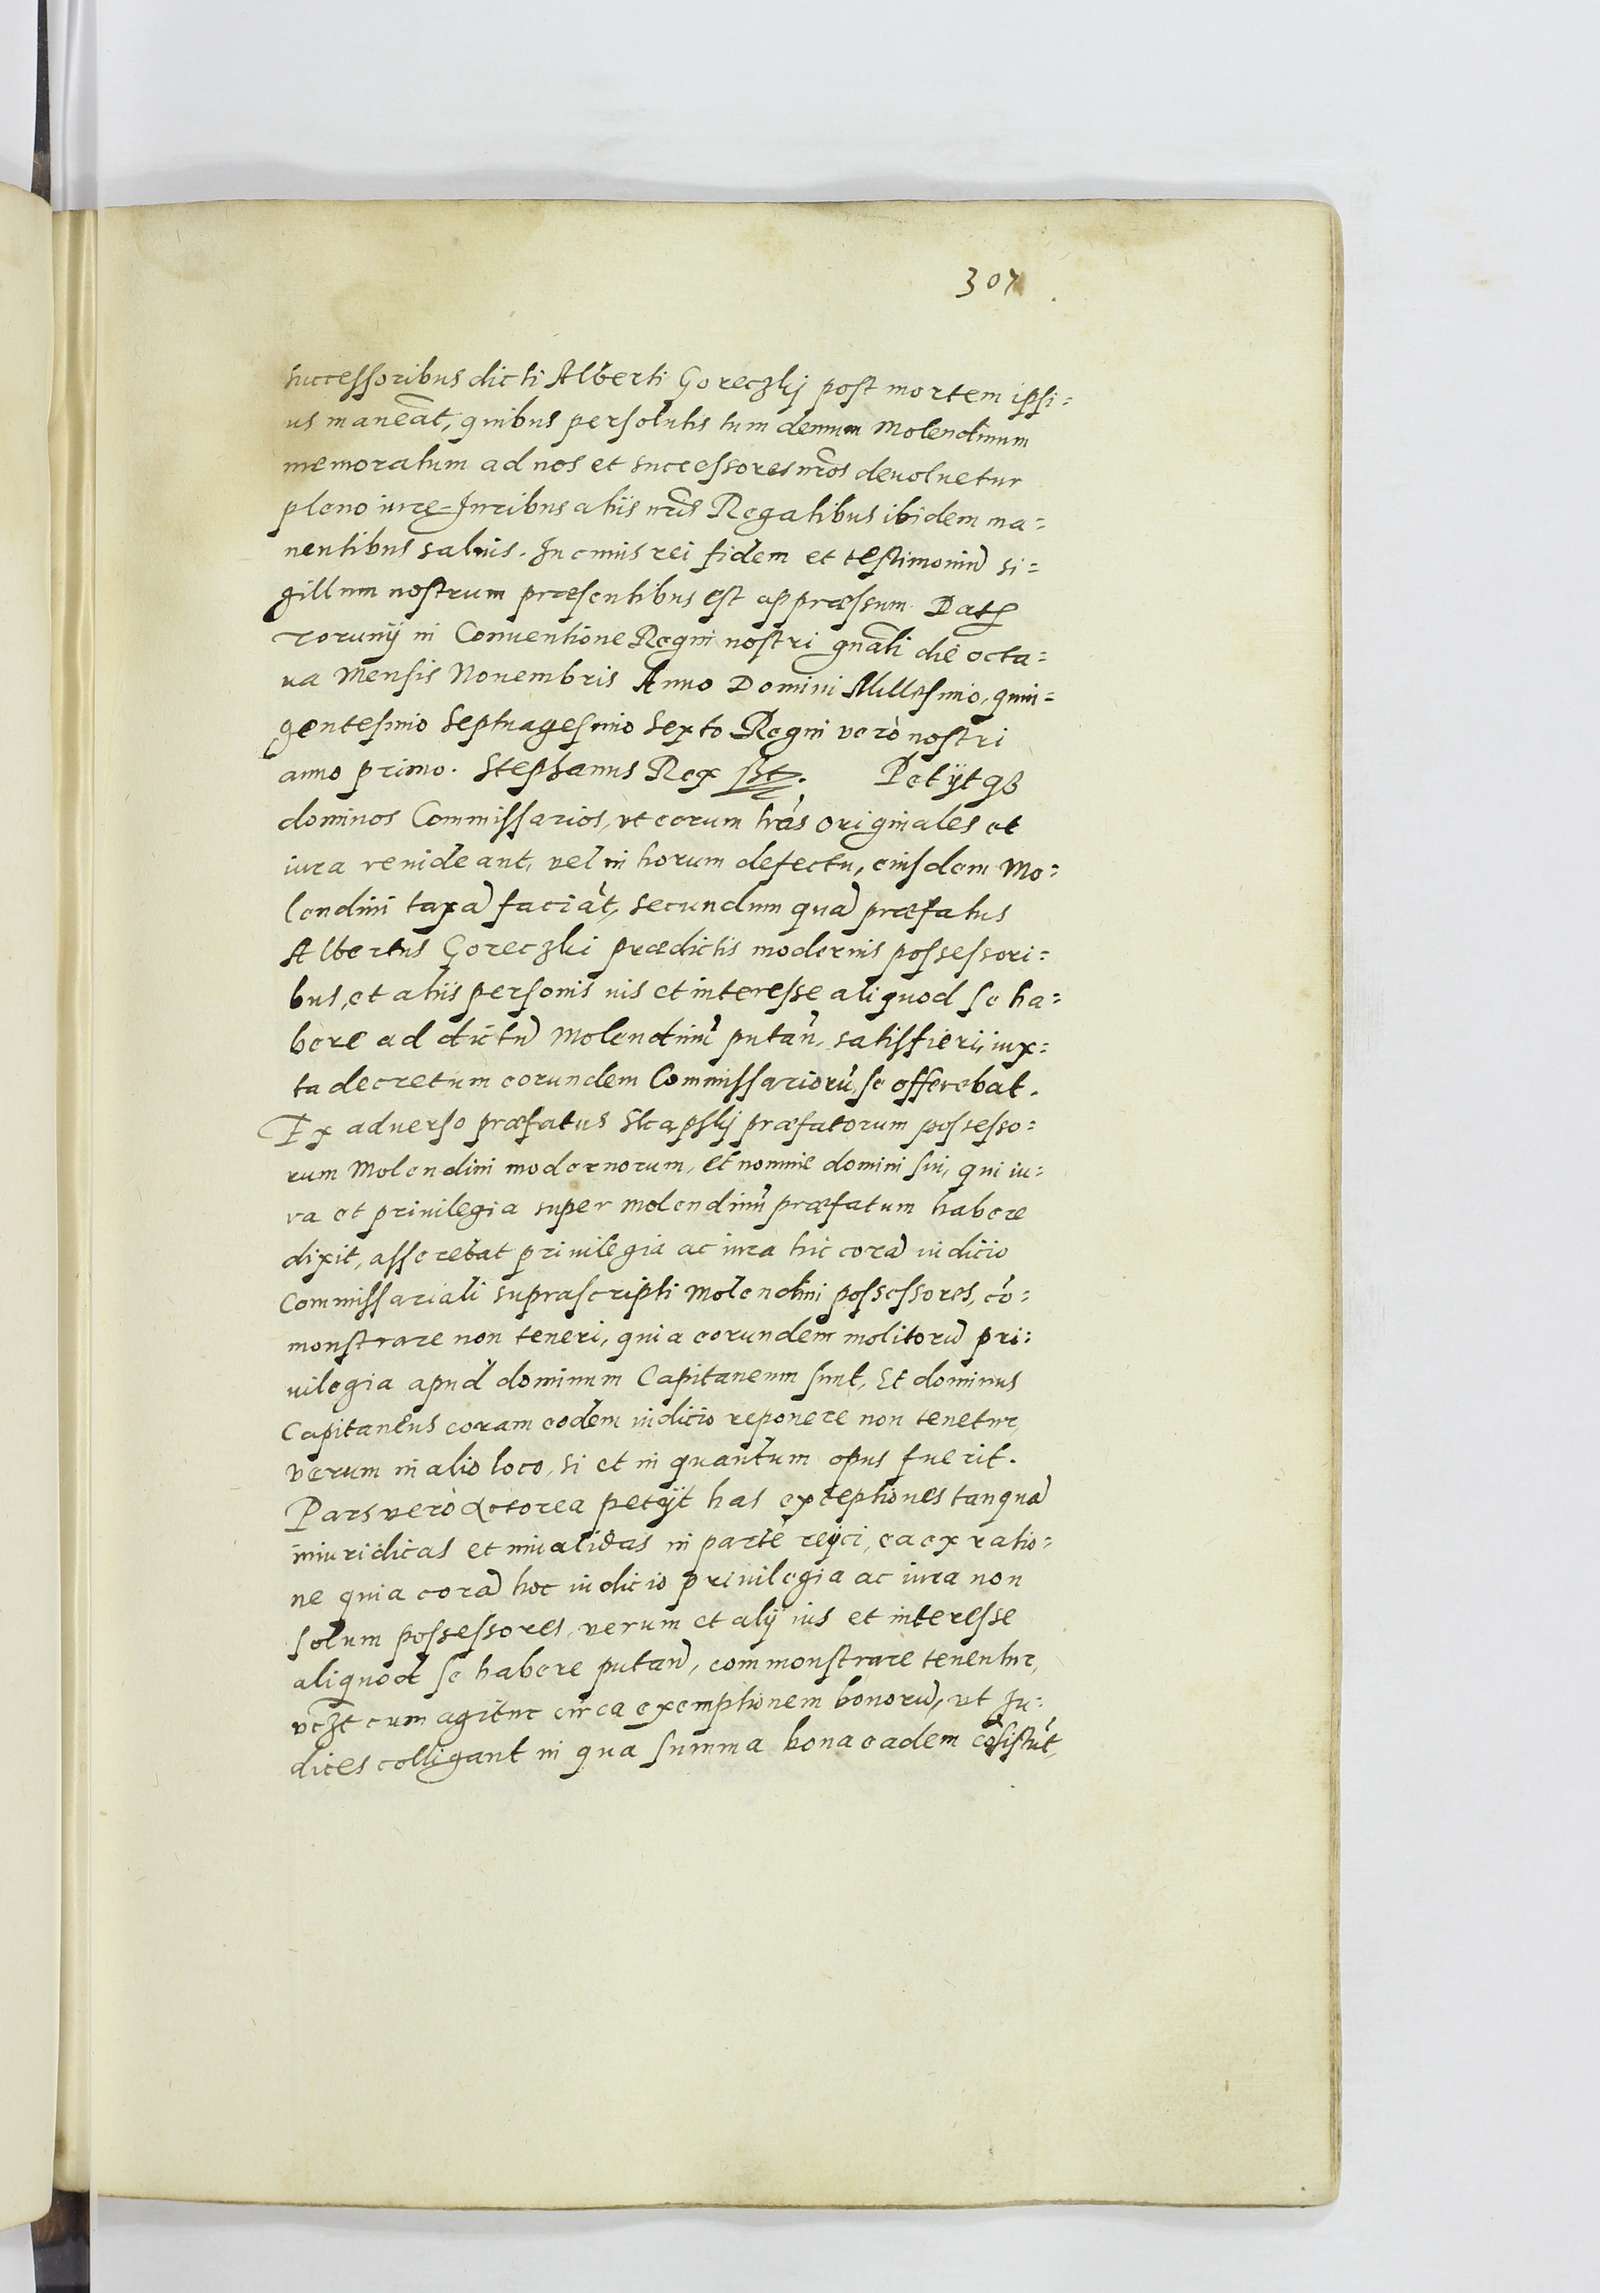 307
successoribus dicti Alberti Goreczkij post mortem ipsi=
us maneãt, quibus persolutis tum demum Molendinum
memoratum ad nos et successores nr̃os deuoluetur
pleno iure Juribus aliis nr̃is Regalibus ibidem ma=
nentibus saluis. In cuius rei fidem et testimoniũ si=
gillum nostrum præsentibus est appræssum. Datꝫ
Torunij in Conuentione Regni nostri gñali die octa=
ua Mensis Nouembris Anno Domini Millesimo, quin=
gentesimo Septuagesimo Sexto Regni verò nostri
anno primo. Stephanus Rex sst. Petÿtqꝫ
dominos Commissarios, vt eorum lr̃as originales et
iura reuideant, vel in horum defectu, eiusdem Mo=
lendini taxã faciãt, secundum quã præfatus
Albertus Goreczki prædictis modernis possessori=
bus, et aliis personis ius et interesse aliquod se ha=
bere ad dictũ Molendinũ putañ, satisfieri, iux=
ta decretum eorundem Commissariorũ, se offerebat.
Ex aduerso præfatus Skapskij præfatorum possesso=
rum Molendini modernorum, et nomine domini sui, qui iu=
ra et priuilegia super molendinũ præfatum habere
dixit, asserebat priuilegia ac iura hic corã iudicio
Commissariali suprascripti Molendini possessores, cõ=
monstrare non teneri, quia eorundem molitorũ pri=
uilegia apud dominum Capitaneum sunt, Et dominus
Capitaneus coram eodem iudicio reponere non tenetur,
verum in alio loco, si et in quantum opus fuerit.
Pars verò Actorea petÿt has exceptiones tanquã
iniuridicas et inualidas in partẽ reijci, ea ex ratio=
ne quia corã hoc iudicio priuilegia ac iura non
solum possessores, verum et alij ius et interesse
aliquod se habere putañ, commonstrare tenentur,
vcꝫt cum agitur circa exemptionem bonorũ, vt Ju=
dices colligant in qua summa bona eadem cõsistũt,